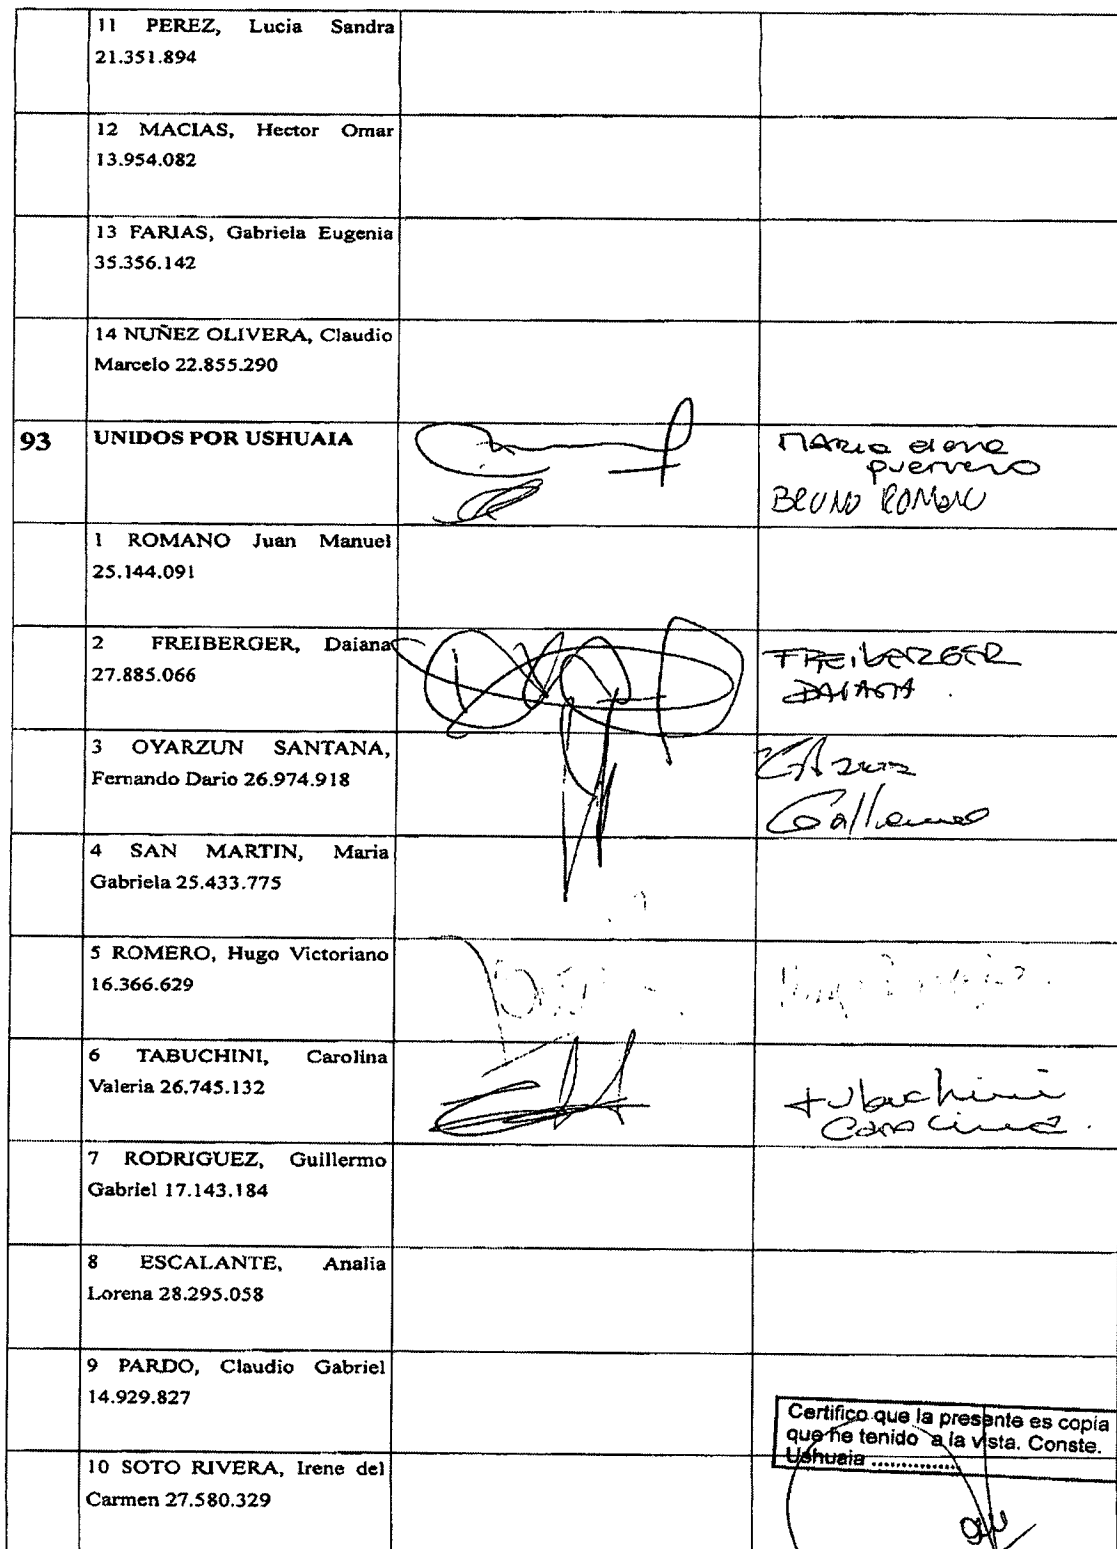 11 PEREZ, Lucia Sandra
21.351.894
12 MACIAS, Hector Omar
13.954.082
13 FARIAS, Gabriela Eugenia
35.356.142
14 NUÑEZ OLIVERA, Claudio
Marcelo 22.855.290
93 UNIDOS POR USHUAIA
MARIA elena
BRUNO ROMANO
1 ROMANO Juan Manuel
25.144.091
2 FREIBERGER, Daiana
27.885.066
FREIBERGER
DAIANA
3 OYARZUN SANTANA,
Fernando Dario 26.974.918
4 SAN MARTIN, Maria
Gabriela 25.433.775
5 ROMERO, Hugo Victoriano
16.366.629
6 TABUCHINI, Carolina
Valeria 26.745.132
tabuchini
Carolina.
7 RODRIGUEZ, Guillermo
Gabriel 17.143.184
8 ESCALANTE, Analia
Lorena 28.295.058
9 PARDO, Claudio Gabriel
14.929.827
10 SOTO RIVERA, Irene del
Carmen 27.580.329
Certifico que la presente es copia
que he tenido a la vista. Conste.
Ushuaia ..............